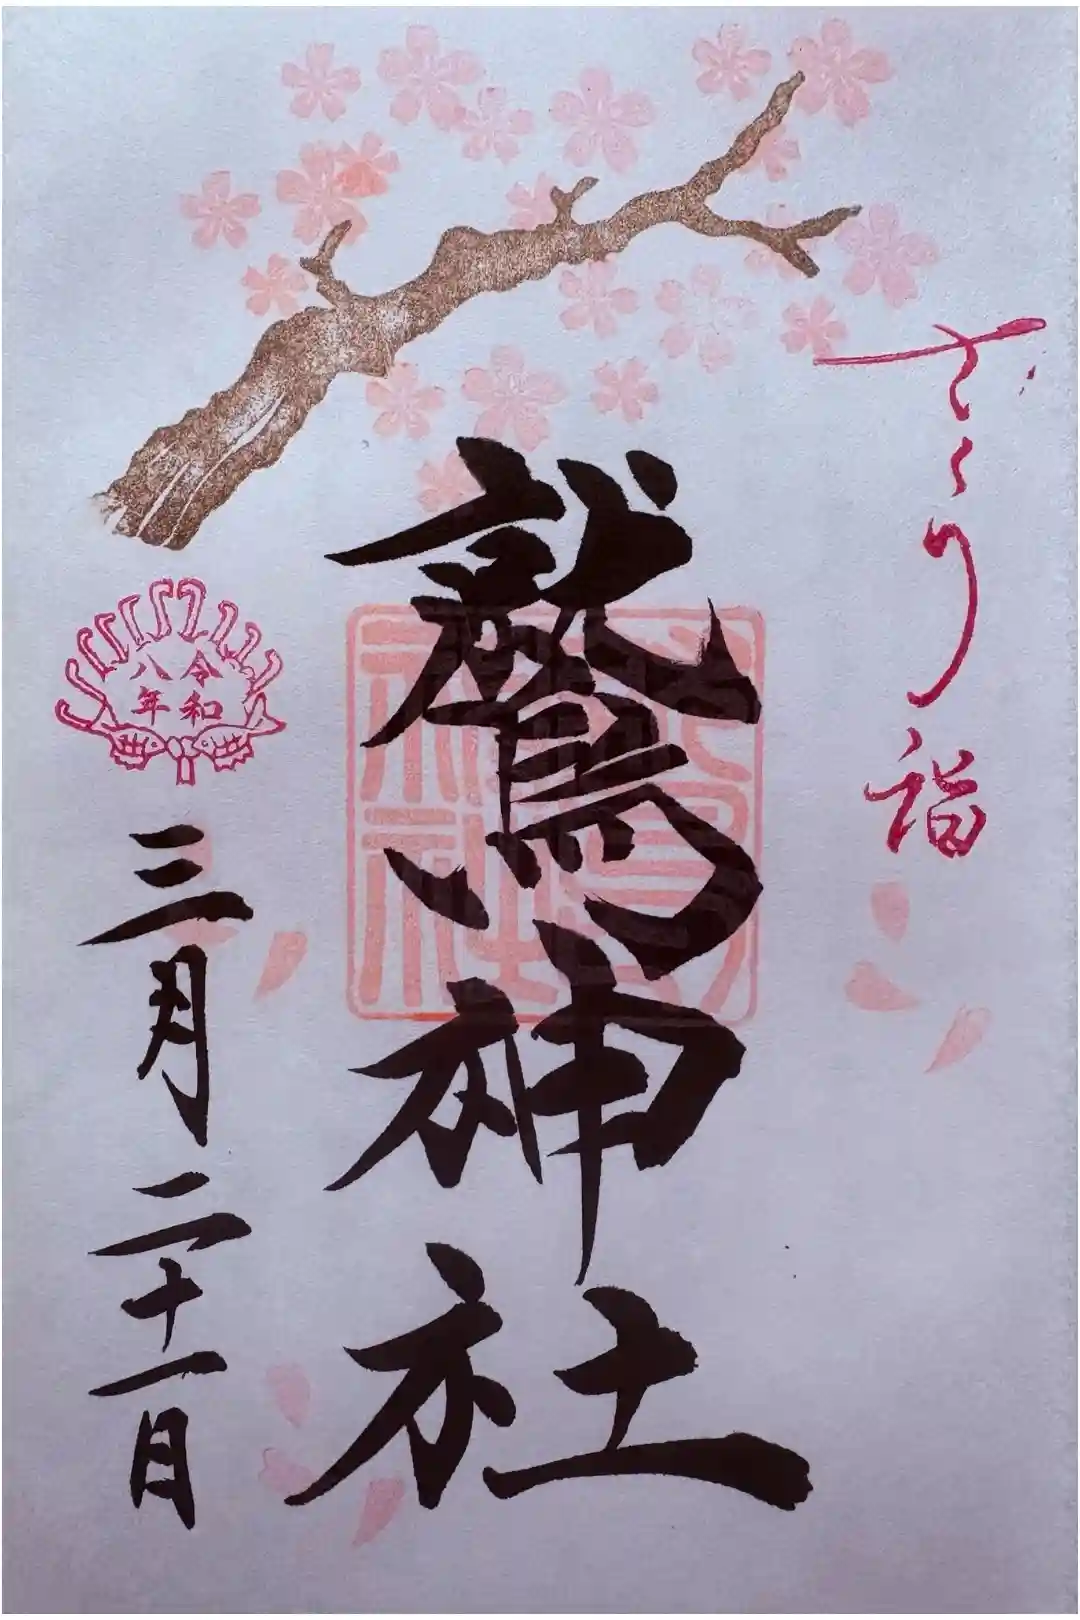 さくら詣
鷲神社
令和
八年
三月二十一日